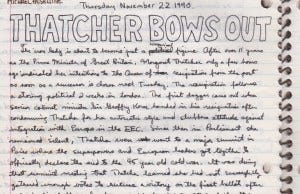 MICHAEL HESELTINE
Thursday November 22 1990.
THATCHER BOWS OUT
The iron lady is about to become just a political figure. After over 11 years
as the Prime Minister of Great Britain, Margaret Thatcher only a few hours
ago indicated her intentions to the Queen of resignation from the post
as soon as a successor is chosen next Tuesday. The resignation follows
a strong political 3 weeks in London. The first dagger came out when
senior cabinet minister Sir Geoffrey Howe handed in his resignation after
condemning Thatcher for her autocratic style and stubborn attitude against
integration with Europe in the EEC. Since then in Parliament the
rumours raised. Thatcher even went to a major summit in
Paris where the Superpowers and European leaders got together to
officially declare the end to the 45 year old cold war. It was during
that summit meeting that Thatcher learned she had not successfully
gathered enough votes to ensure a victory on the first ballot after